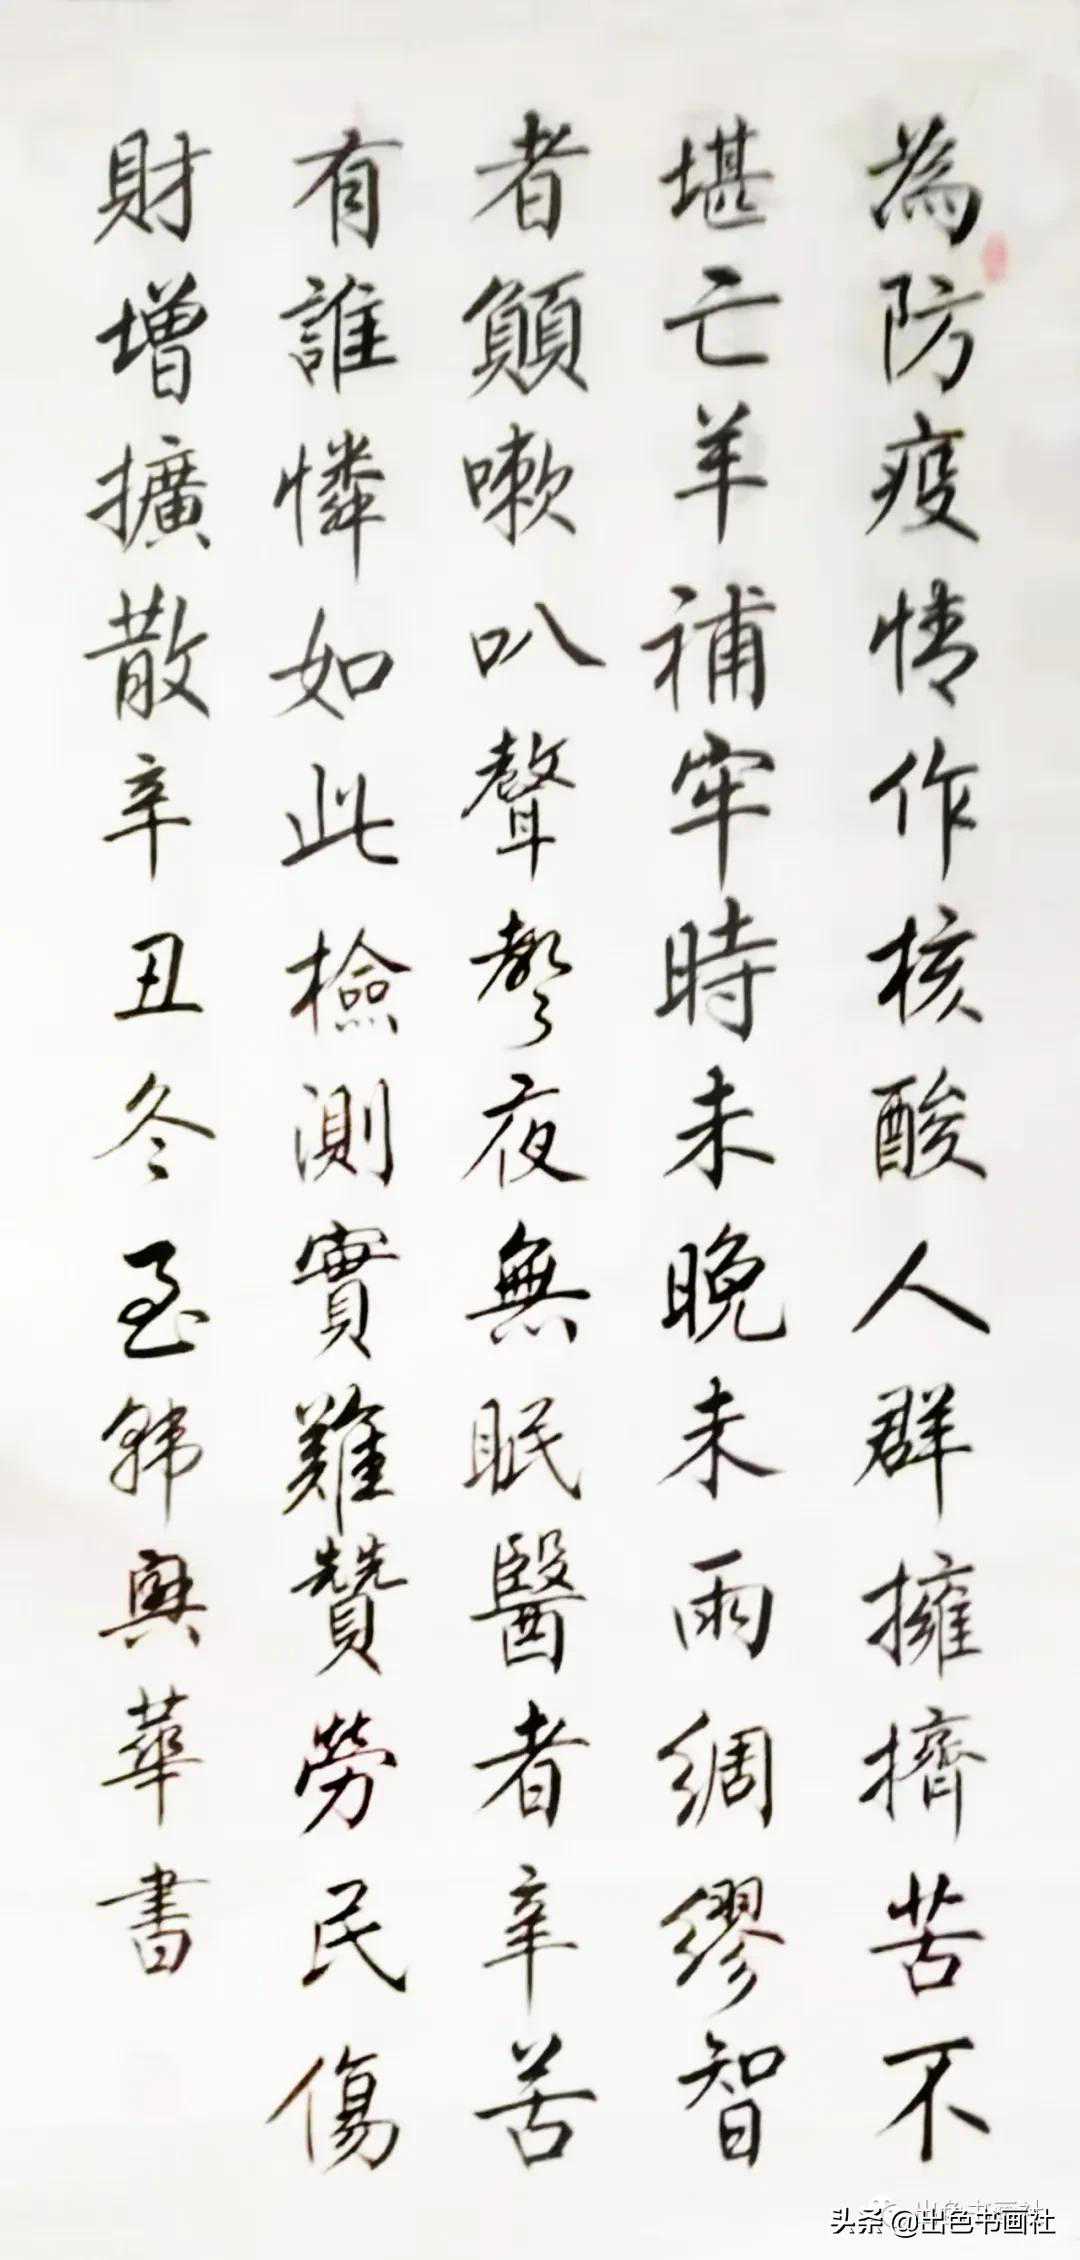 為防疫情作核酸人群擁擠苦不
堪亡羊補牢時未晚未雨綢繆智
者顛嗽叭聲聲夜無眠醫者辛苦
有誰憐如此檢測實難贊勞民傷
財增擴散辛丑冬至韓興華書
出色书画社
头条 @出色书画社